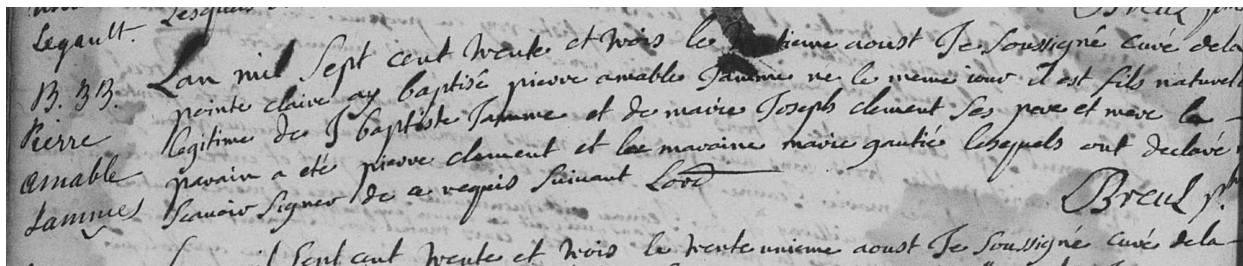 Legault.
B. 33.
Pierre
amable
Jammes
Lan mil Sept cent trente et trois le trentieme aoust Je Soussigné curé dela
pointe claire ay baptisé pierre amable Jamme ne le meme iour il est fils naturel
legitime de J baptiste Jamme et de marie Joseph clement Ses pere et mere le
parain a été pierre clement et la maraine marie gautié lesquels ont declaré
Scavoir Signer de ce requis Suivant Lord
Breul p.
Sept cent trente et trois le trente unieme aoust Je Soussigné curé dela